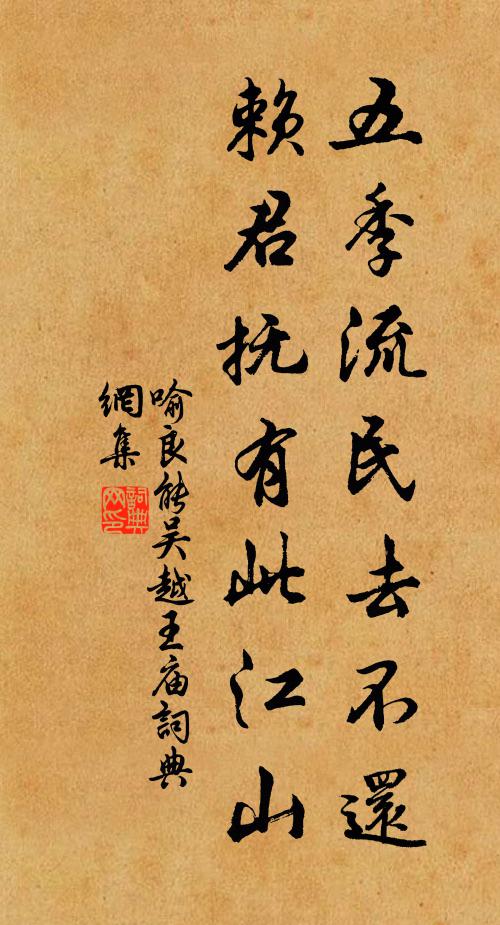 五季流民去不還
賴君抚有此江山
喻良能吴越王庙詞典
網集
詞典
网印